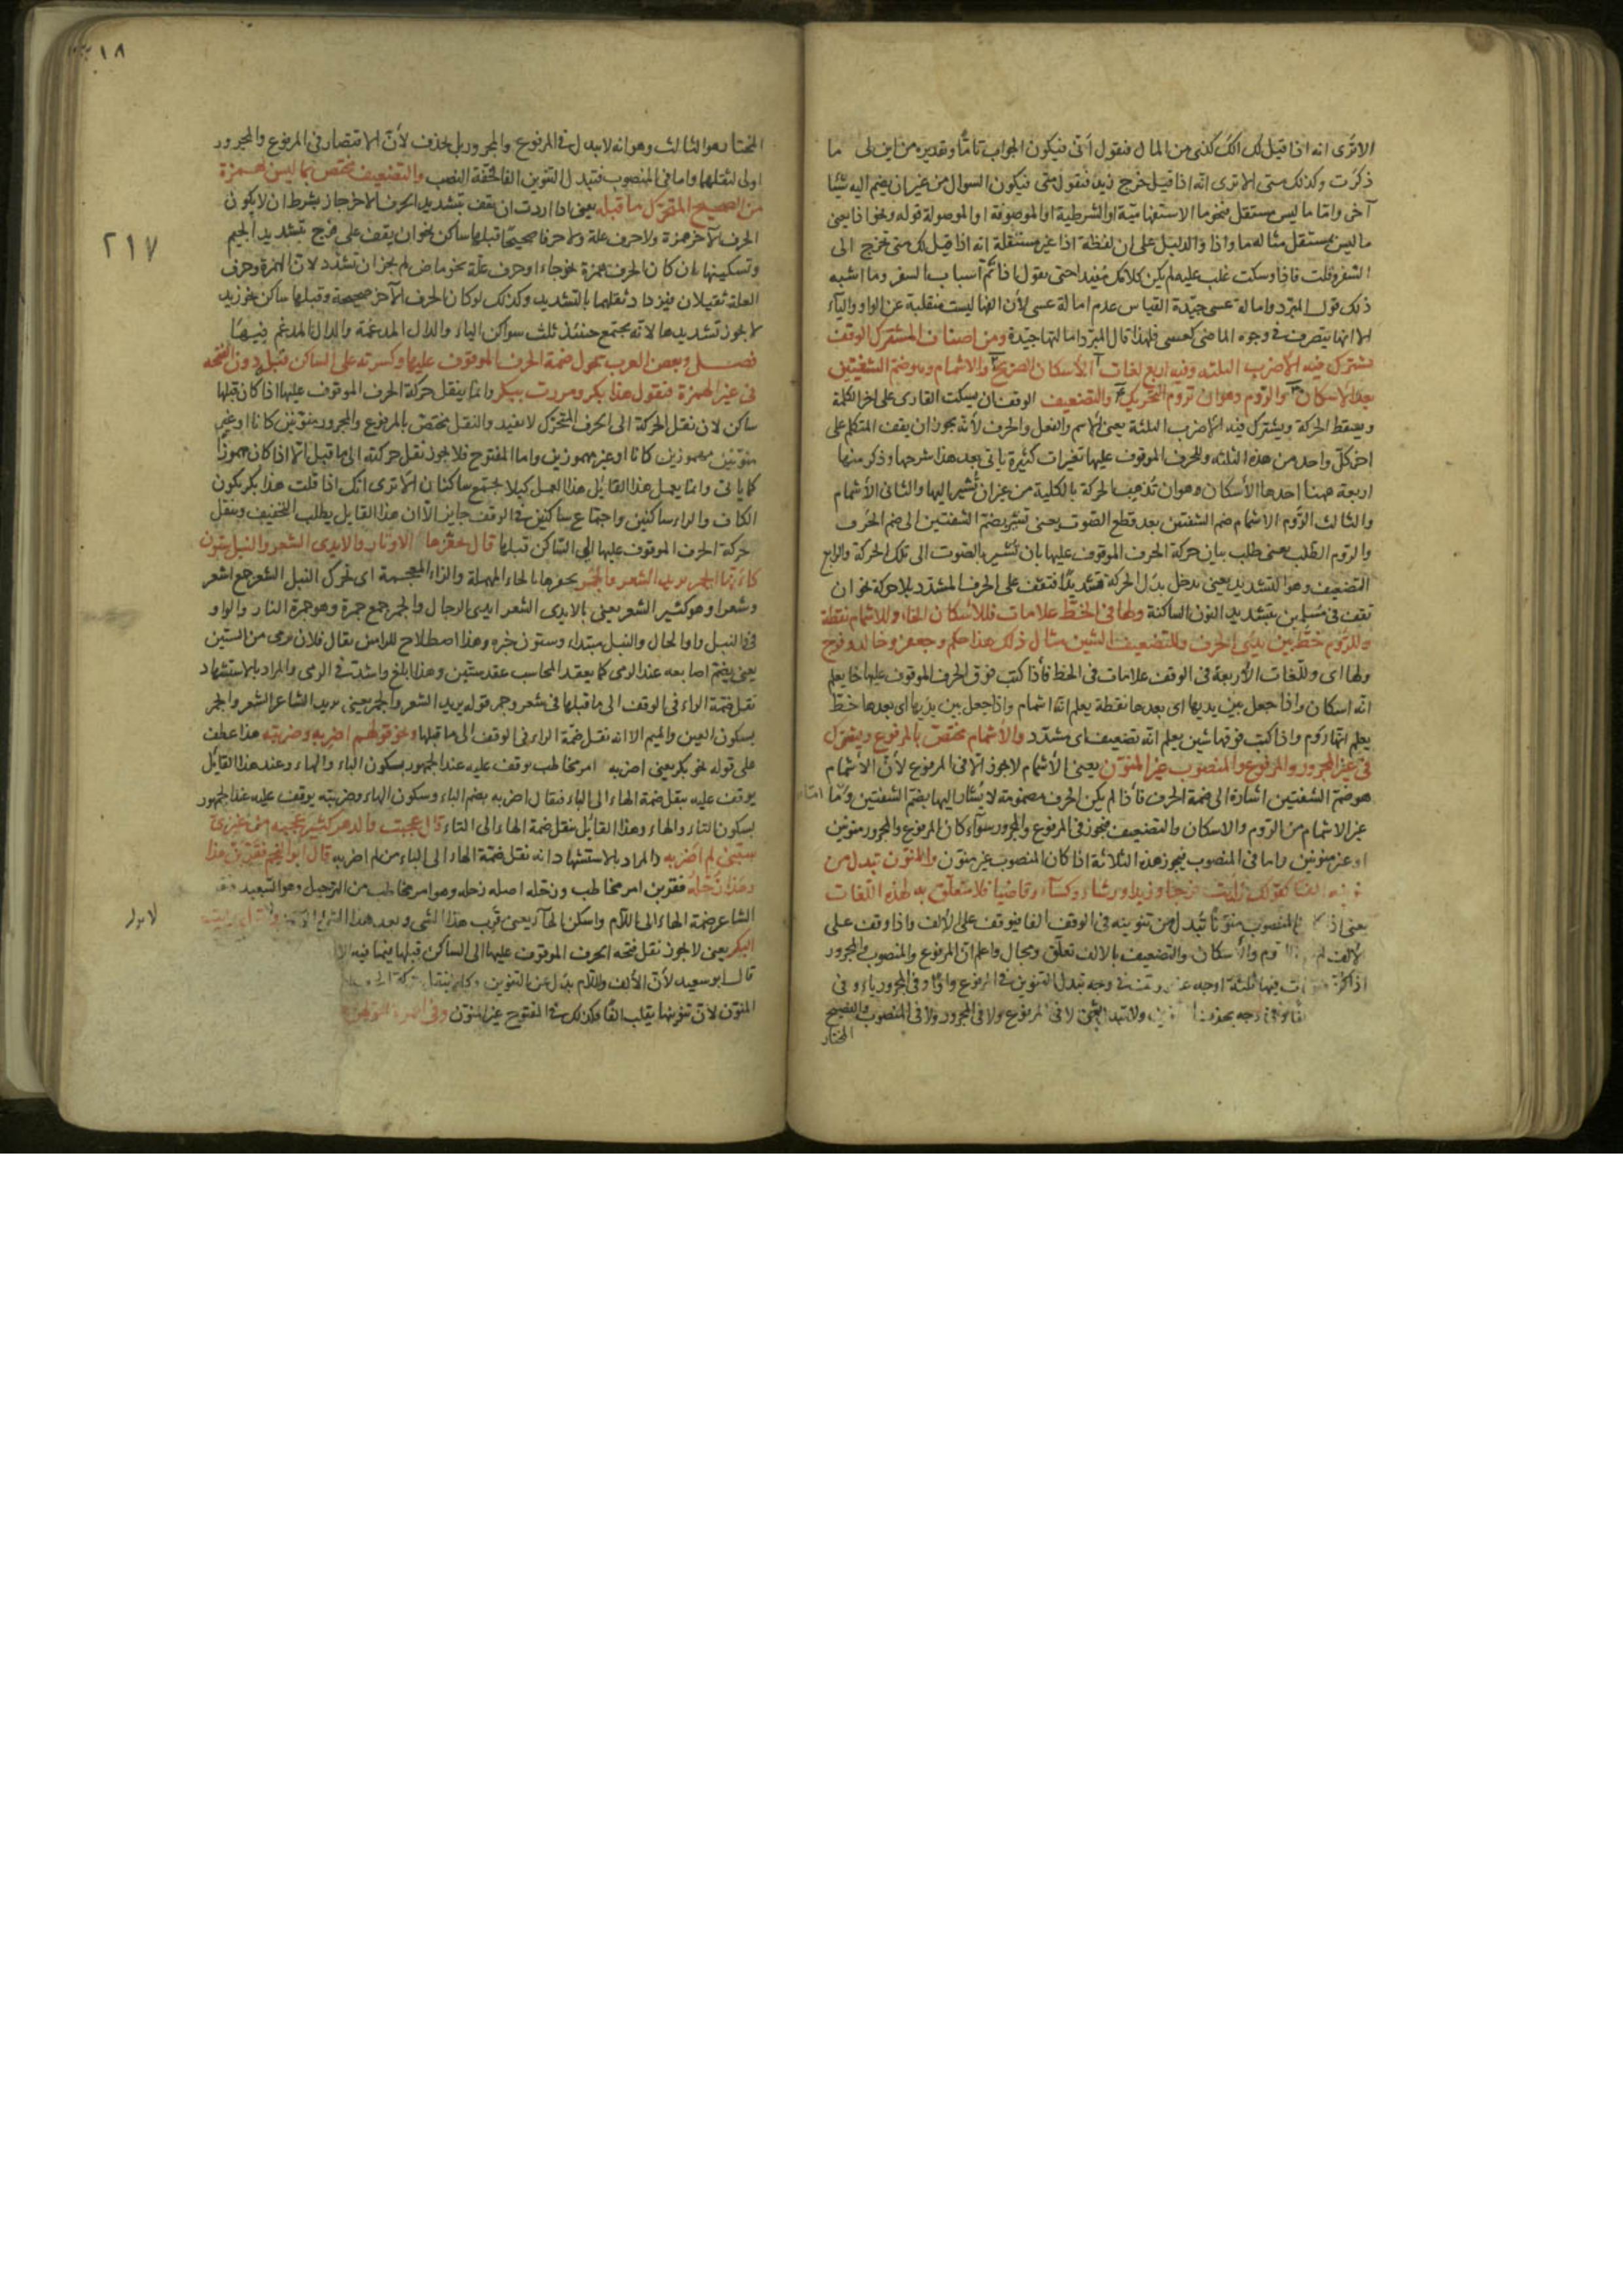 الا ترى انه اذا قيل لك الك كذى من المال فتقول انّى فيكون الجواب تامّا وتقديره من اين لى ما
ذكرت وكذلك متى الا ترى انّه اذا قيل خرج زيد فتقول متى فيكون السوال من غير ان يضم اليه شيئا
آخر وامّا ما ليس بمستقل فنحو ما الاستفهاميّة او الشرطية او الموصوفة او الموصولة قوله ونحو اذا يعنى
ما ليس بمستقل مثاله ما واذا والدليل على ان لفظة اذا غير مستقلة انه اذا قيل لك متى تخرج الى
السفر وقلت فاذا وسكت عليه لم يكن كلامك مفيدا حتى تقول اذا تمّ اسباب السفر وما اشبه
ذلك قول المبرد وامالة عسى جيّدة القياس عدم امالة عسى لأن الفها ليست منقلبة عن الواو والياء
الا انها يتصرف فى وجوه الماضى كعسى فلهذا قال المبرّد امالتها جيّدة ومن اصناف المشترك الوقف
تشترك فيه الأضرب الثلثة وفيه اربع لغات الأسكان الصريح والاشمام وهو ضم الشفتين
بعد الأسكان والرّوم وهو ان تروم التحريك والتضعيف الوقف ان يسكت القارى على اخر الكلمة
ويسقط الحركة ويشترك فيه الأضرب الثلثة يعنى الأسم والفعل والحرف لأنه يجوز ان يقف المتكلم على
اخر كلّ واحد من هذه الثلثة وللحرف الموقوف عليها تغيرات كثيرة ياتى بعد هذا شرحها وذكر منها
اربعة ههنا احدها الأسكان وهو ان تذهب الحركة بالكلية من غير ان تشير اليها والثانى الأشمام
والثالث الرّوم الاشمام ضم الشفتين بعد قطع الصّوت يعنى تشير بضم الشفتين الى ضم الحرف
والروم الطّلب يعنى طلب بيان حركة الحرف الموقوف عليها بان تشير بالصّوت الى تلك الحركة والرابع
التضعيف وهو التشديد يعنى تدخل بدل الحركة تشديدًا فتقف على الحرف المشدد بلا حركة نحو ان
تقف فى مسلمين بتشديد النون الساكنة ولها فى الخطّ علامات فللأسكان الخاء وللاشمام نقطة
وللرّوم خطّ بين يدى الحرف وللتضعيف الشين مثال ذلك هذا حكم وجعفر وخالد وفرج
ولها اى وللّغات الأربعة فى الوقف علامات فى الخط فأذا كتب فوق الحرف الموقوف عليها خا يعلم
انّه اسكان واذا جعل بين يديها اى بعدها نقطة يعلم انّه اشمام واذا جعل بين يديها اى بعدها خطّ
يعلم انّها روم واذا كتب فوقها شين يعلم انّه تضعيف اى مشدّد والأشمام مختصّ بالمرفوع ويشترك
فى غير المجرور والمرفوع والمنصوب غير المنوّن يعنى الأشمام لا يجوز الا فى المرفوع لأنّ الأشمام
هو ضمّ الشفتين اشارة الى ضمّة الحرف فأذا لم يكن الحرف مضمومة لا يشار اليها بضمّ الشفتين وامّا
غير الاشمام من الرّوم والاسكان والتضعيف فيجوز فى المرفوع والمجرور سوآء كان المرفوع والمجرور منونين
او غير منونين واما فى المنصوب فيجوز هذه الثلاثة اذا كان المنصوب غير منوّن والمنوّن تبدل من
تنوينه الفا كقولك رأيت فرجا وزيدا ورشاء وكساء وقاضيا فلا متعلّق به لهذه اللّغات
يعنى اذا المنصوب منوّنا تبدل من تنوينه فى الوقف الفا فيوقف على الألف واذا وقف على
الالف لم والأسكان والتضعيف بالالف تعلّق ومجال واعلم ان المرفوع والمنصوب والمجرور
اذا كانت فيها ثلثة اوجه فى وجه تبدل التنوين فى المرفوع واوًا وفى المجرور ياء وفى
الفا وفى وجه يحذف ولا تبدل بشئ لا فى المرفوع ولا فى المجرور ولا فى المنصوب والفصيح
المختار
١٨
٢١٧
المختار هو الثالث وهو انه لا يبدل فى المرفوع والمجرور بل يحذف لأنّ الاقتصار فى المرفوع والمجرور
اولى لثقلها واما فى المنصوب فتبدل التنوين الفا لخفّة النصب والتضعيف مختص بما ليس بهمزة
من الصحيح المتحرّك ما قبله يعنى اذا اردت ان تقف بتشديد الحرف الاخر جاز بشرط ان لا يكون
الحرف الآخر همزة ولا حرف علة ولا حرفا صحيحا قبلها ساكن نحو ان يقف على فرج بتشديد الجيم
وتسكينها فان كان الحرف همزة نحو جاء او حرف علّة نحو ماض لم يجز ان تشدّد لانّ الهمزة وحرف
العلة ثقيلان فيزداد ثقلهما بالتشديد وكذلك لو كان الحرف الآخر صحيحة وقبلها ساكن نحو زيد
لا يجوز تشديدها لانّه يجتمع حينئذ ثلث سواكن الياء والدال المدغمة والدال المدغم فيها
فصل وبعض العرب يحول ضمة الحرف الموقوف عليها وكسرته على الساكن قبله دون الفتحة
فى غير الهمزة فيقول هذا بكر ومررت ببكر وانّما ينقل حركة الحرف الموقوف عليها اذا كان قبلها
ساكن لان نقل الحركة الى الحرف المتحرّك لا يفيد والنقل يختصّ بالمرفوع والمجرور منوّنين كانا او غير
منوّنين مهموزين كانا او غير مهموزين واما المفتوح فلا يجوز نقل حركته الى ما قبل الا اذا كان مهموزا
كما ياتى وانّما يعمل هذا القائل هذا العمل كيلا يجتمع ساكنان الا ترى انّك اذا قلت هذا بكر يكون
الكاف والراء ساكنين واجتماع ساكنين فى الوقف جايز الا ان هذا القايل يطلب التخفيف وينقل
حركة الحرف الموقوف عليها الى السّاكن قبلها قال تحفزها الاوتار والايدى الشعر والنبل ستون
كأنها الجمر يريد الشعر والجمر يحفزها بالحاء المهملة والزاء المعجمة اى تحرك النبل الشعر جمع اشعر
وشعراء وهو كثير الشعر يعنى بالايدى الشعر ايدى الرجال والجمر جمع جمرة وهو جمرة النار والواو
فى والنبل واو الحال والنبل مبتداء وستون خبره وهذا اصطلاح للرامين يقال فلان يرمى من الستين
يعنى يضم اصابعه عند الرمى كما يعقد المحاسب عقد ستّين وهذا ابلغ واشدّ فى الرمى والمراد بالاستشهاد
نقل ضمّة الراء فى الوقف الى ما قبلها فى شعر وجمر قوله يريد الشعر والجمر يعنى يريد الشاعر الشعر والجمر
بسكون العين والميم الا انه نقل ضمّة الراء فى الوقف الى ما قبلها ونحو قولهم اضربه وضربته هذا عطف
على قوله نحو بكر يعنى اضربه امر مخاطب يوقف عليه عند الجمهور بسكون الباء والهاء وعند هذا القائل
يوقف عليه بنقل ضمة الهاء الى الباء فيقال اضربه بضم الباء وسكون الهاء وضربته يوقف عليه عند الجمهور
بسكون التاء والهاء وهذا القائل ينقل ضمة الهاء الى التاء قال عجبت والدهر كثير عجبه من عنزى
سبّنى لم اضربه والمراد بالاستشهاد انه نقل ضمّة الهاء الى الباء من لم اضربه قال ابو النجم فقرّبن هذا
وهذا زحّله فقربن امر مخاطب وزحّله اصله زحله وهو امر مخاطب من التزحيل وهو التبعيد
الشاعر ضمة الهاء الى اللام واسكن الهاء يعنى قرّب هذا الشئ وبعد هذا
البكر يعنى لا يجوز نقل فتحه الحرف الموقوف عليها الى الساكن قبلها فيما فيه
قال ابو سعيد لأنّ الألف واللام بدل عن التنوين
المنوّن لانّ تنوينها يقلب الفًا فكذلك فى المفتوح غير المنوّن وفى الهمزة